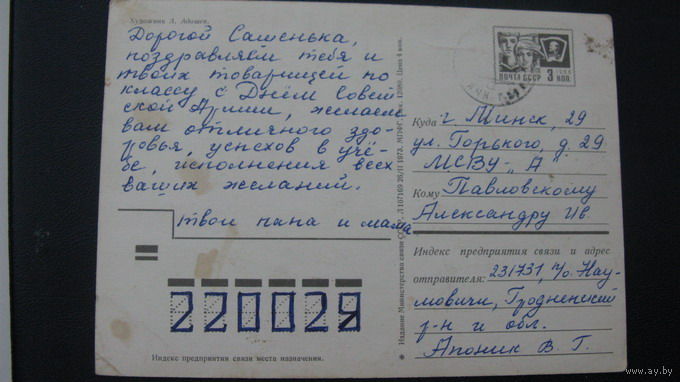 Художник Л. Адошев.
Дорогой Сашенька,
поздравляем тебя и
твоих товарищей по
классу с Днём Совет
ской Армии, желаем
вам отличного здо-
ровья, успехов в учё-
бе, исполнения всех
ваших желаний.
твои папа и мама
220029
Индекс предприятия связи места назначения.
Издание Министерства связи СССР. 107169 26/II 1973. Цена 4 коп.
ПОЧТА СССР 3 КОП.
Куда г. Минск, 29
ул. Горького, д. 29
МСВУ- „А"
Кому Павловскому
Александру Ив.
Индекс предприятия связи и адрес
отправителя: 231731, п/о. Нау-
мовичи, Гродненский
р-н и обл.
Апоник В. Г.
www.ay.by